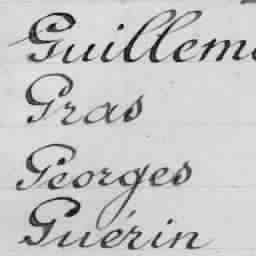 Guilleme
Gras
Georges
Guérin